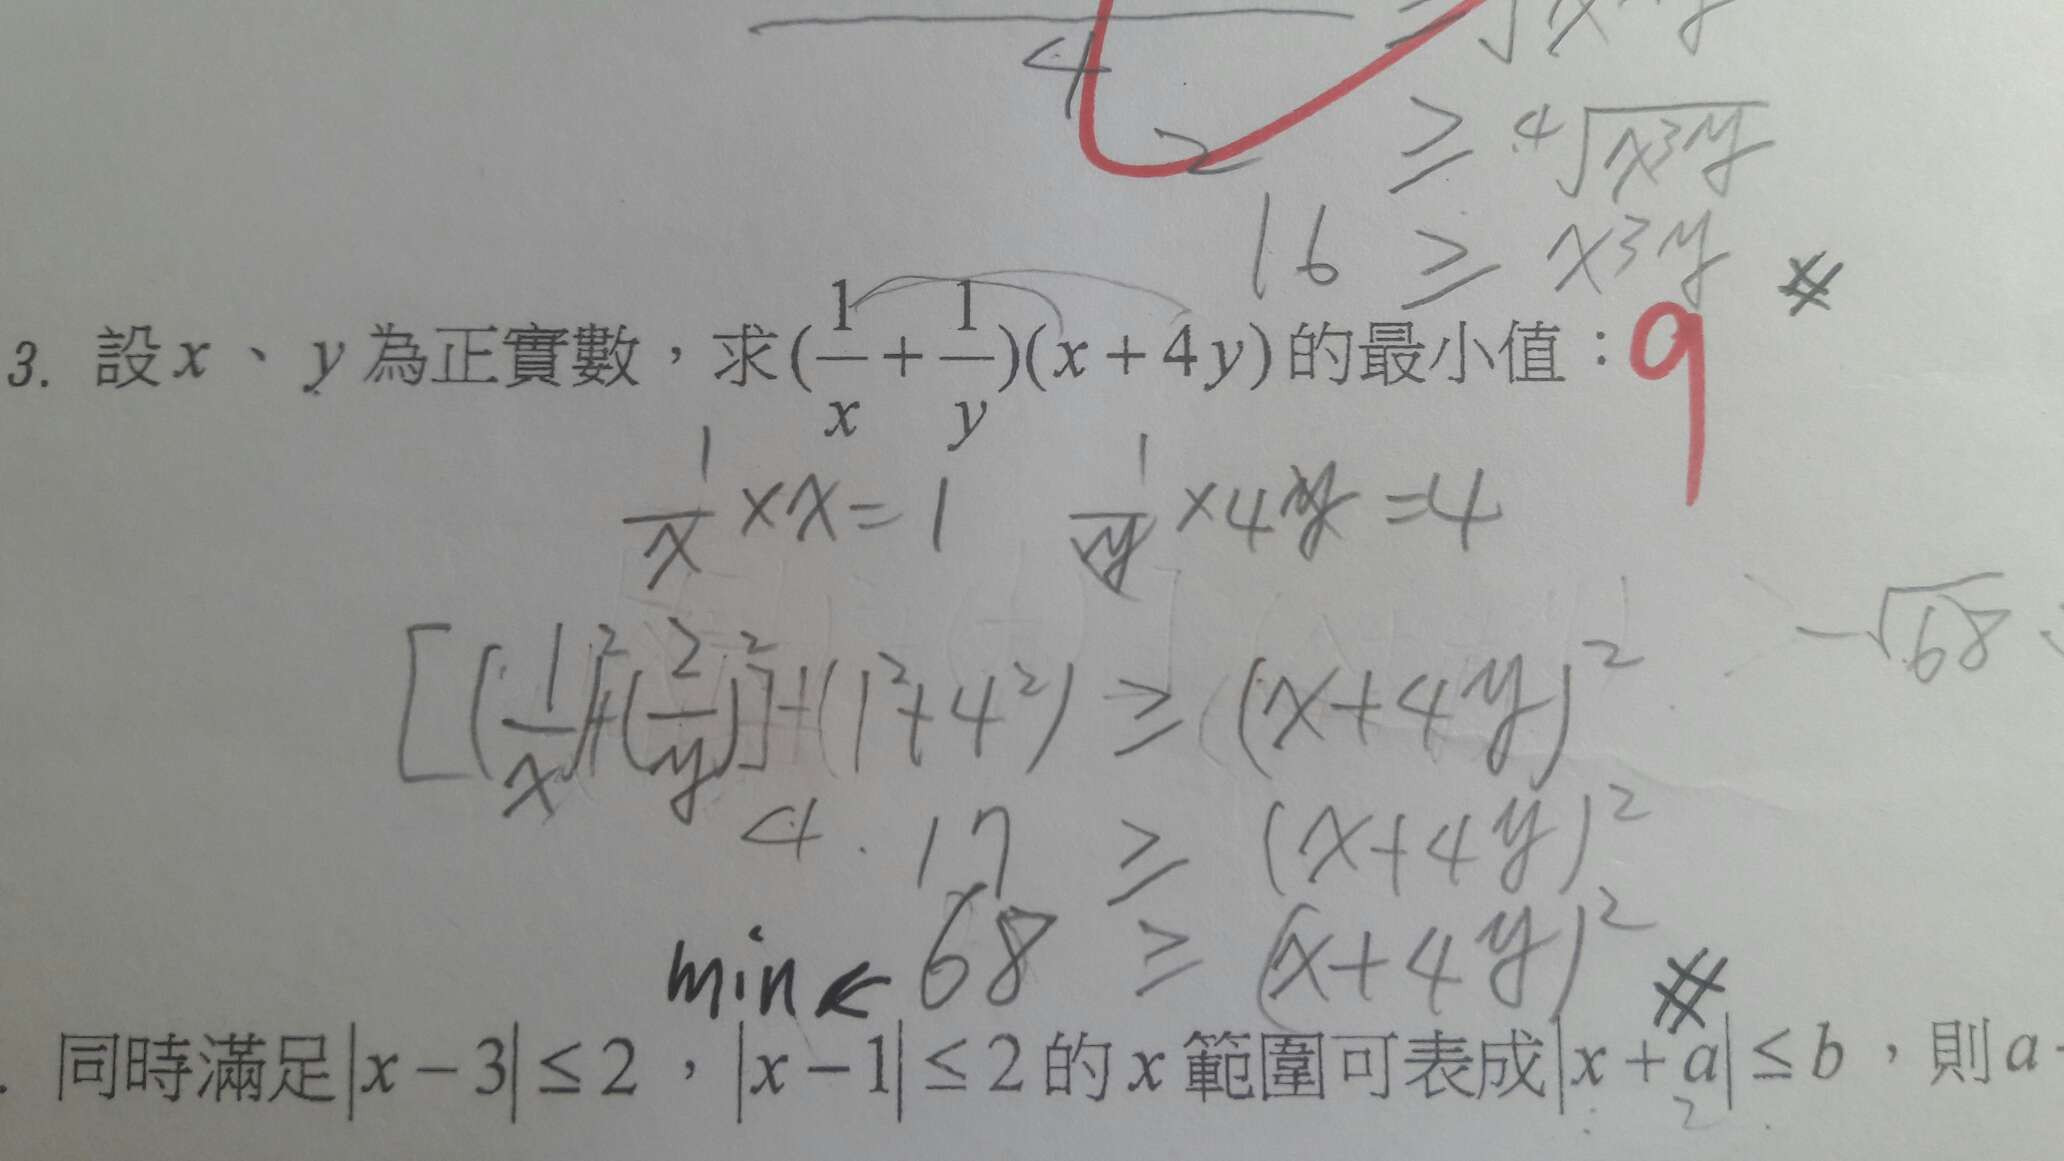 4
2 ≥ ⁴√(x³y)
16 ≥ x³y #
3. 設 x、y 為正實數，求(1/x + 1/y)(x + 4y) 的最小值：9
1/x × x = 1  1/y × 4y = 4
-√68
[(1/x)² + (2/y)²] + (1² + 4²) ≥ (x + 4y)²
4 · 17 ≥ (x + 4y)²
min ← 68 ≥ (x + 4y)² #
. 同時滿足|x − 3| ≤ 2，|x − 1| ≤ 2 的 x 範圍可表成|x + a| ≤ b，則 a
2